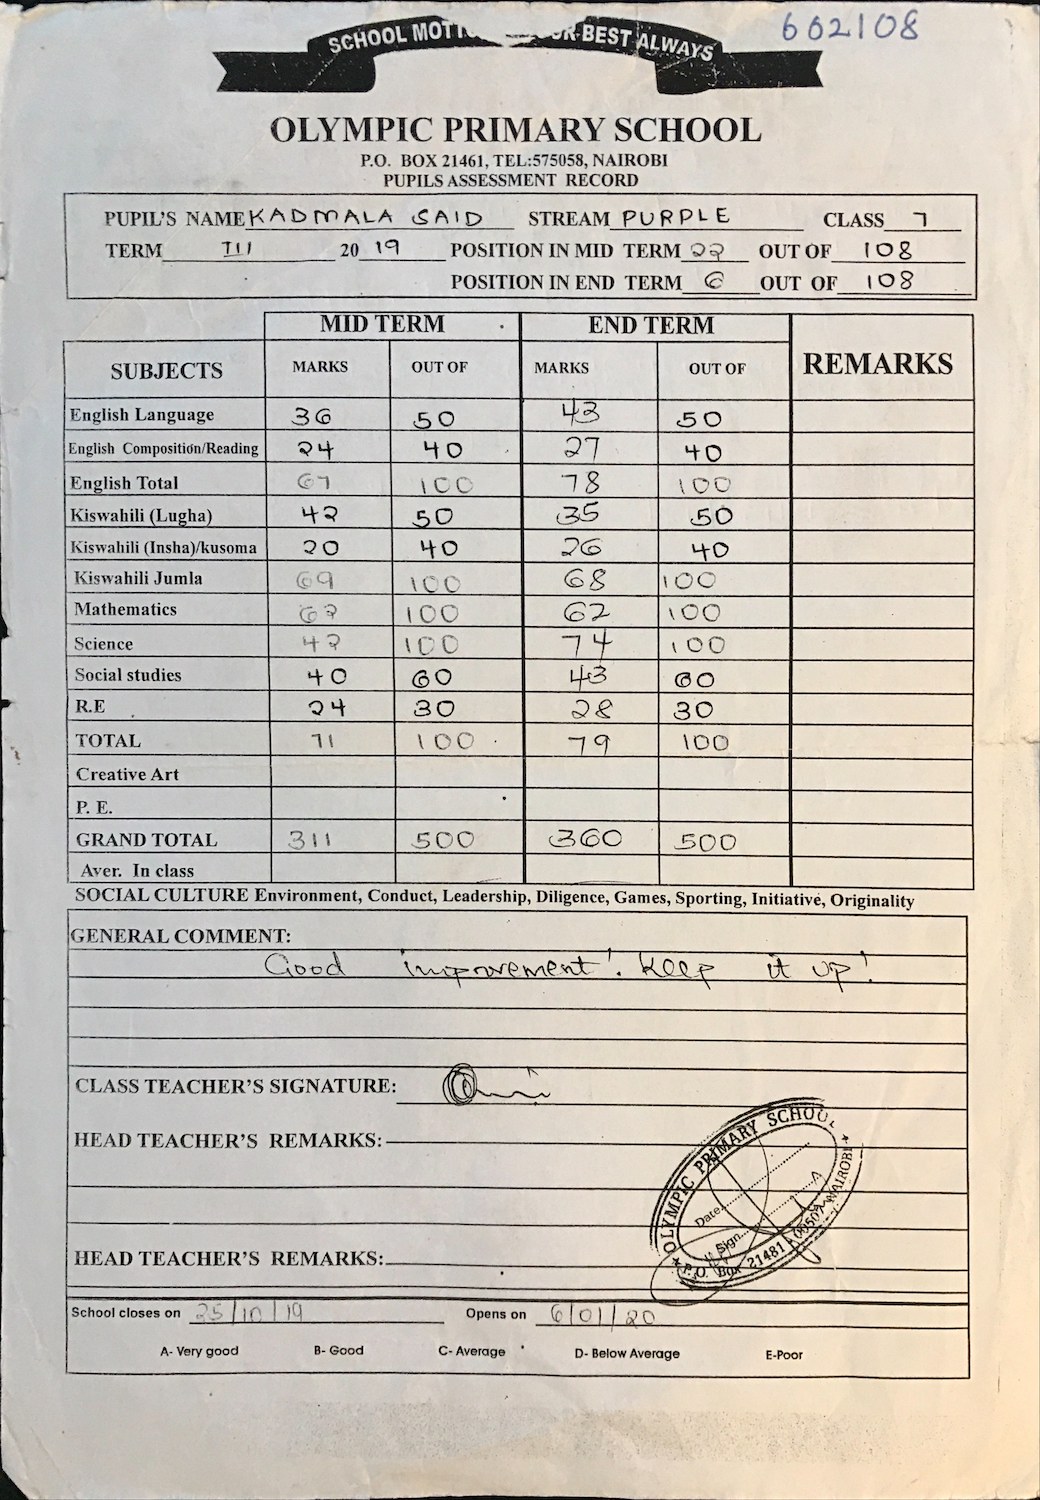 SCHOOL MOTTO OUR BEST ALWAYS
602108
OLYMPIC PRIMARY SCHOOL
P.O. BOX 21461, TEL:575058, NAIROBI
PUPILS ASSESSMENT RECORD
PUPIL'S NAME KADMALA SAID STREAM PURPLE CLASS 7
TERM III 20 19 POSITION IN MID TERM 22 OUT OF 108
POSITION IN END TERM 6 OUT OF 108
MID TERM END TERM
SUBJECTS MARKS OUT OF MARKS OUT OF REMARKS
English Language 36 50 43 50
English Composition/Reading 24 40 27 40
English Total 67 100 78 100
Kiswahili (Lugha) 42 50 35 50
Kiswahili (Insha)/kusoma 20 40 26 40
Kiswahili Jumla 69 100 68 100
Mathematics 62 100 62 100
Science 42 100 74 100
Social studies 40 60 43 60
R.E 24 30 28 30
TOTAL 71 100 79 100
Creative Art
P. E.
GRAND TOTAL 311 500 360 500
Aver. In class
SOCIAL CULTURE Environment, Conduct, Leadership, Diligence, Games, Sporting, Initiative, Originality
GENERAL COMMENT:
Good improvement! Keep it up!
CLASS TEACHER'S SIGNATURE:
HEAD TEACHER'S REMARKS:
OLYMPIC PRIMARY SCHOOL
Date
Sign
P.O. Box 21481 - 00507 NAIROBI
HEAD TEACHER'S REMARKS:
School closes on 25/10/19 Opens on 6/01/20
A- Very good B- Good C- Average D- Below Average E-Poor